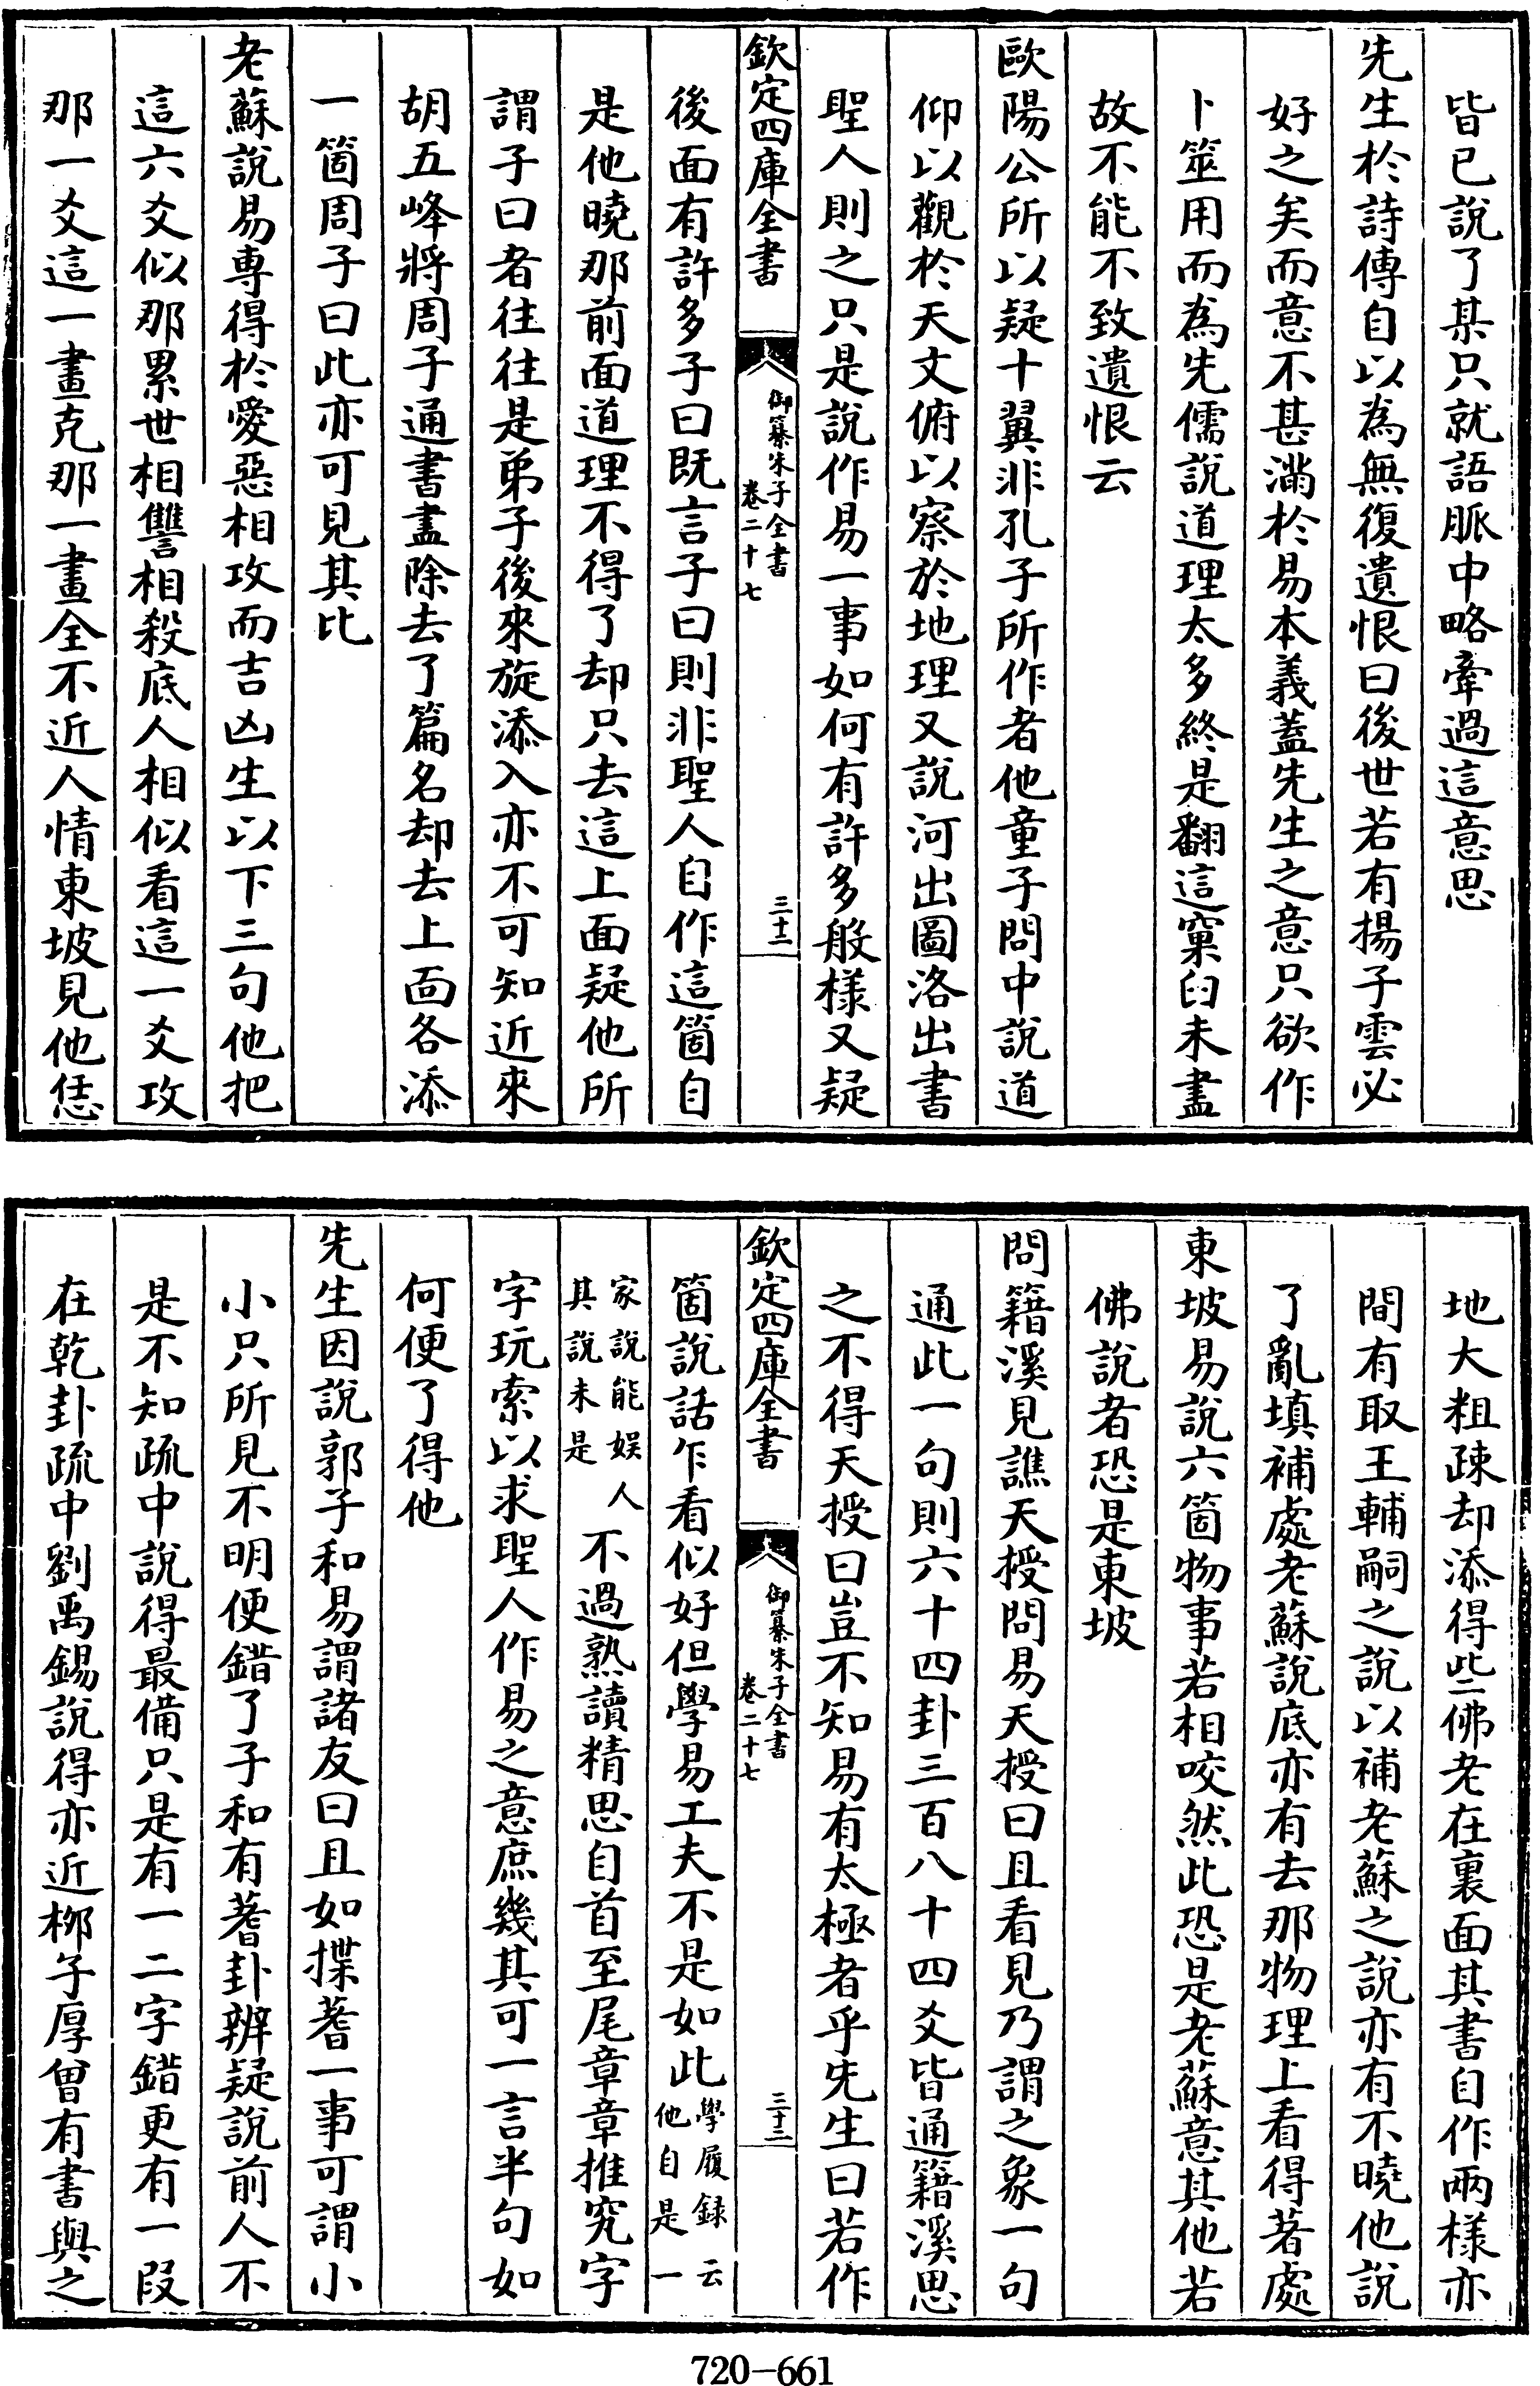 皆已說了某只就語脈中略牽過這意思
先生於詩傳自以為無復遺恨曰後世若有揚子雲必
好之矣而意不甚滿於易本義蓋先生之意只欲作
卜筮用而為先儒說道理太多終是翻這窠臼未盡
故不能不致遺恨云
歐陽公所以疑十翼非孔子所作者他童子問中說道
仰以觀於天文俯以察於地理又說河出圖洛出書
聖人則之只是說作易一事如何有許多般樣又疑
欽定四庫全書
御纂朱子全書
卷二十七
三十二
後面有許多子曰既言子曰則非聖人自作這箇自
是他曉那前面道理不得了却只去這上面疑他所
謂子曰者往往是弟子後來旋添入亦不可知近來
胡五峰將周子通書盡除去了篇名却去上面各添
一箇周子曰此亦可見其比
老蘇說易專得於愛惡相攻而吉凶生以下三句他把
這六爻似那累世相讐相殺底人相似看這一爻攻
那一爻這一畫克那一畫全不近人情東坡見他恁
地大粗疎却添得些佛老在裏面其書自作兩樣亦
間有取王輔嗣之說以補老蘇之說亦有不曉他說
了亂填補處老蘇說底亦有去那物理上看得著處
東坡易說六箇物事若相咬然此恐是老蘇意其他若
佛說者恐是東坡
問籍溪見譙天授問易天授曰且看見乃謂之象一句
通此一句則六十四卦三百八十四爻皆通籍溪思
之不得天授曰豈不知易有太極者乎先生曰若作
欽定四庫全書
御纂朱子全書
卷二十七
三十三
箇說話乍看似好但學易工夫不是如此學履録云他自是一
家說能娱人其說未是不過熟讀精思自首至尾章章推究字
字玩索以求聖人作易之意庶幾其可一言半句如
何便了得他
先生因說郭子和易謂諸友曰且如揲蓍一事可謂小
小只所見不明便錯了子和有蓍卦辨疑說前人不
是不知疏中說得最備只是有一二字錯更有一段
在乾卦疏中劉禹錫說得亦近栁子厚曾有書與之
720-661